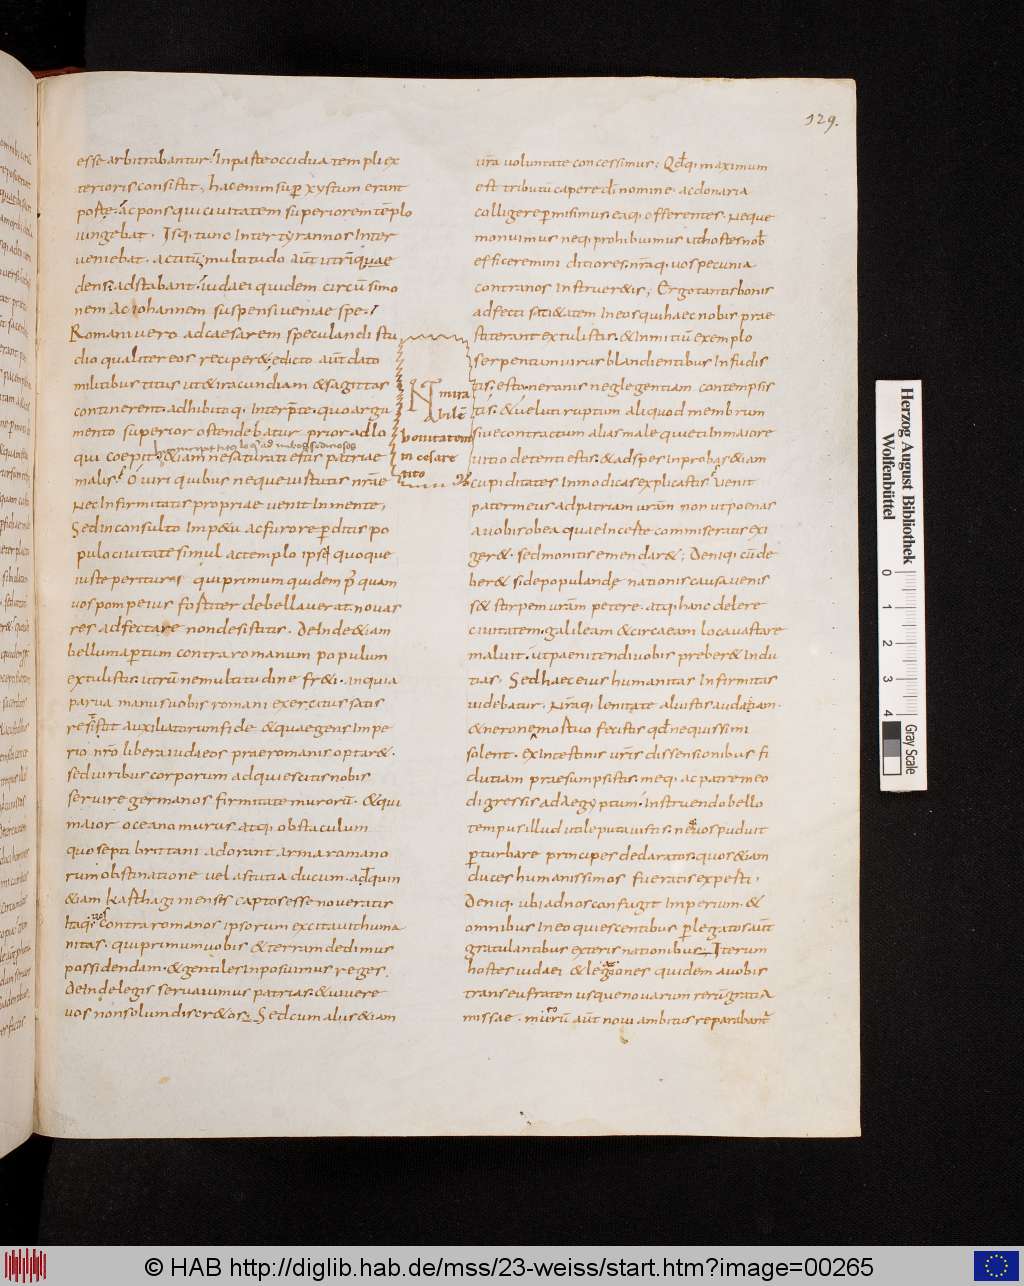 129.
esse arbitrabantur. Inpaste occidua templi ex
terioris consistit, hac enim sup xystum erant
poste. ac pons qui ciuitatem superiorem tēplo
iungebat. Isq; tunc Inter tyrannos Inter
ueniebat. ac titū multitudo aut utrinquae
dens; adstabant. iudaei quidem circū simo
nem Ac iohannem suspensi ueniae spe.
Romani uero adcaesarem speculandi stu
dio qualiter eos recuper&; edicto aut dato
militibus titus ut & iracundiam & sagittas
continerent. adhibitoq. Interpte. quo argu
mento superior ostendebatur prior adlo
qui coepit. & iam nesaturati estis patriae
malis? O uiri quibus neque uirtutis nrae
Nec Infirmitatis propriae uenit In mente;
Sed Inconsulto Imp&u ac furore pditis po
pulo ciuitate simul ac templo ipse quoque
iuste perituri qui primum quidem p quam
uos pompeius fortiter debellauerat. nouas
res adfectare non desistitis. De Inde & iam
bellum aptum contra romanum populum
extulistis. utrū ne multitudine fr&i. inquia
parua manus uobis romani exercitus satis
restitit auxiliatorum fide & quae gens Impe
rio nro libera iudaeos prae romanis optar&.
sed uiribus corporum adquiescitis nobis
seruire germanos firmitate murorū. & qui
maior oceano murus atq; obstaculum
quo septi brittani adorant arma romano
rum obstinatione uel astutia ducum. adquin
& iam karthaginenses captos esse noueratis
Itaq; uos contra romanos ipsorum excitauit huma
nitas. qui primum uobis & terram dedimus
possidendam. & gentiles Inposuimus reges.
De Inde legis seruauimus patrias. & uiuere
uos non solum discr&os; Sed cum aliis & iam
N mira
bilē
bonitatem
in cesare
tito
ura uoluntate concessimus; Qdq; maximum
est tributū capere di nomine. ac donaria
colligere pmisimus. eaq; offerentes. neque
monuimus neq; prohibuimus ut hostes nob
efficeremini ditiores. nraq. uos pecunia
contra nos Instruer&is; Ergo tantis bonis
adfecti sati&atem In eos qui haec nobis prae
stiterant extulistis. & Inmitiū exemplo
serpentum uirus blandientibus Infudis
tis. esto. neronis neglegentiam contempsis
tis. & ueluti ruptum aliquod membrum
siue contractum alias male quieti In maiore
uitio detenti estis. & ad spes Inprobas & iam
cupiditates Inmodicas explicastis. Uenit
pater meus ad patriam uram non ut poenas
a uobis ob ea quae In ceste commiseratis exi
ger&. sed monitis emendar&; Deniq. cū de
ber& si depopulande nationis causa uenis
s& stirpem uram petere. atq; hanc delere
ciuitatem. galileam & circa eam loca uastare
maluit. ut paenitendi uobis preber& Indu
tias. Sed haec eius humanitas Infirmitas
uidebatur. Nraq. lenitate aluistis audatiam.
& nerone mortuo fecistis qd nequissimi
solent. ex Intestinis uris dissensionibus fi
dutiam praesumpsistis. meq. ac patre meo
digressis ad Aegyptum. Instruendo bello
tempus illud utile putauistis. nec uos puduit
pturbare principes declaratos. quos & iam
duces humanissimos fueratis experti.
Deniq. ubi ad nos confugit Imperium. &
omnibus In eo quiescentibus p legatos aut
gratulantibus exteris nationibus. Iterum
hostes iudaei & legationes quidem a uobis
trans eufraten usque nouarum rerū gratia
missae. muroru aut noui ambitus reparabant
Herzog August Bibliothek
Wolfenbüttel
0 1 2 3 4
Gray Scale
© HAB http://diglib.hab.de/mss/23-weiss/start.htm?image=00265